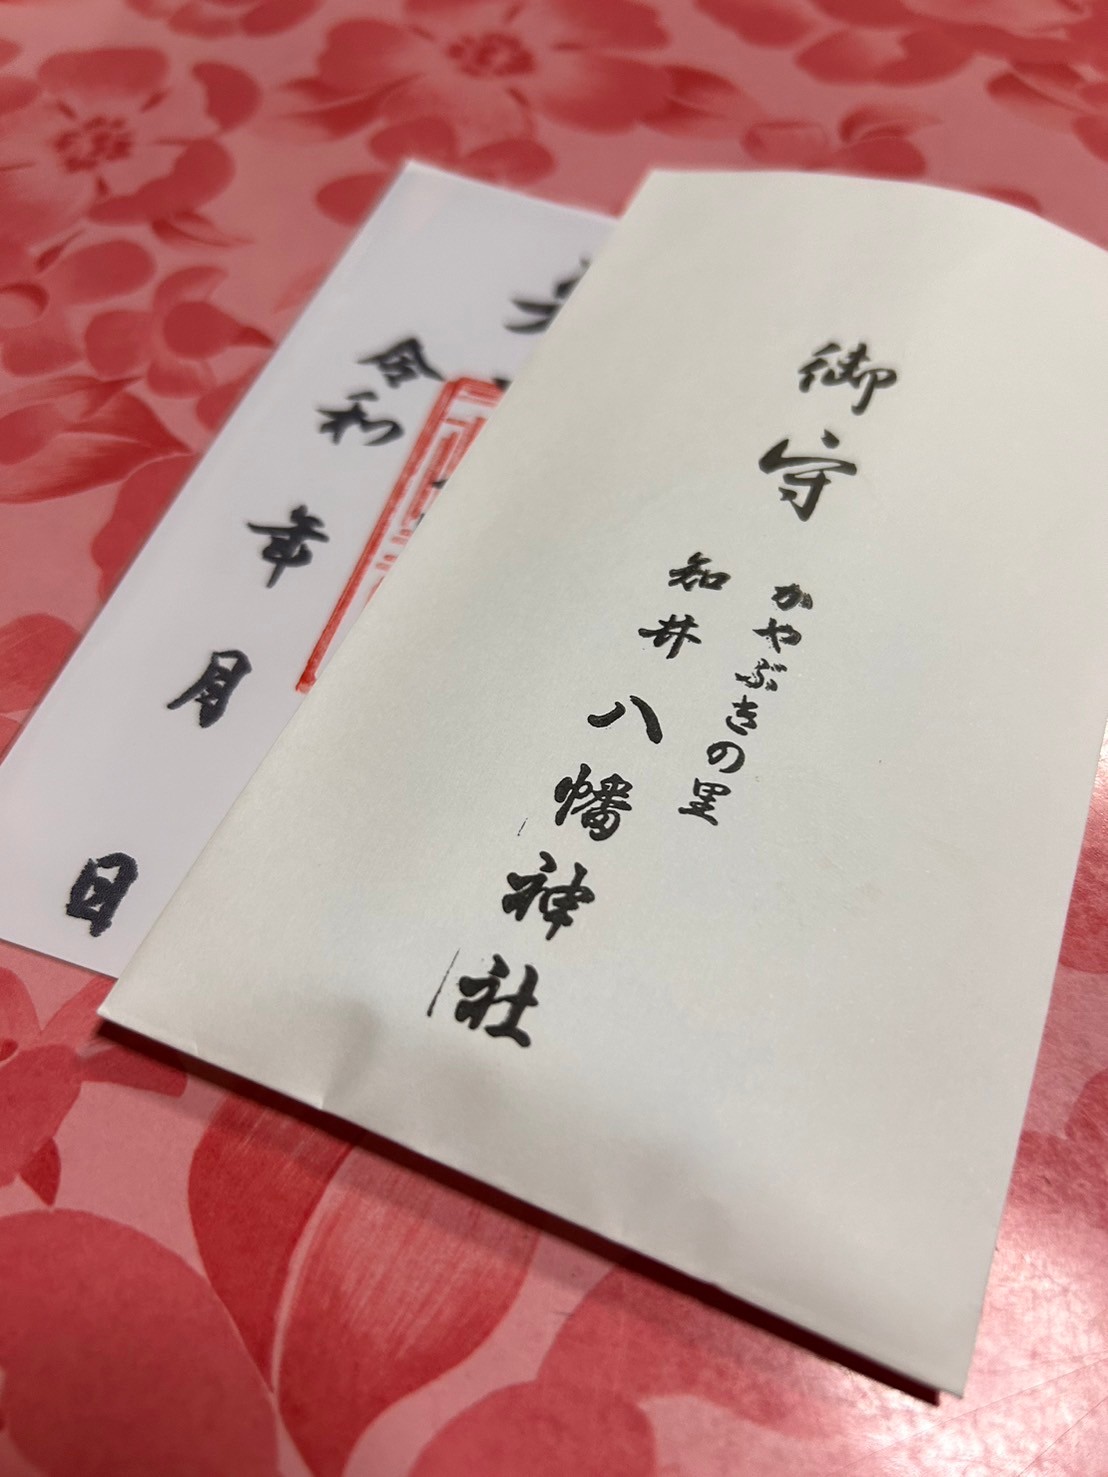 御守
かやぶきの里
知井八幡神社
令和 年 月 日